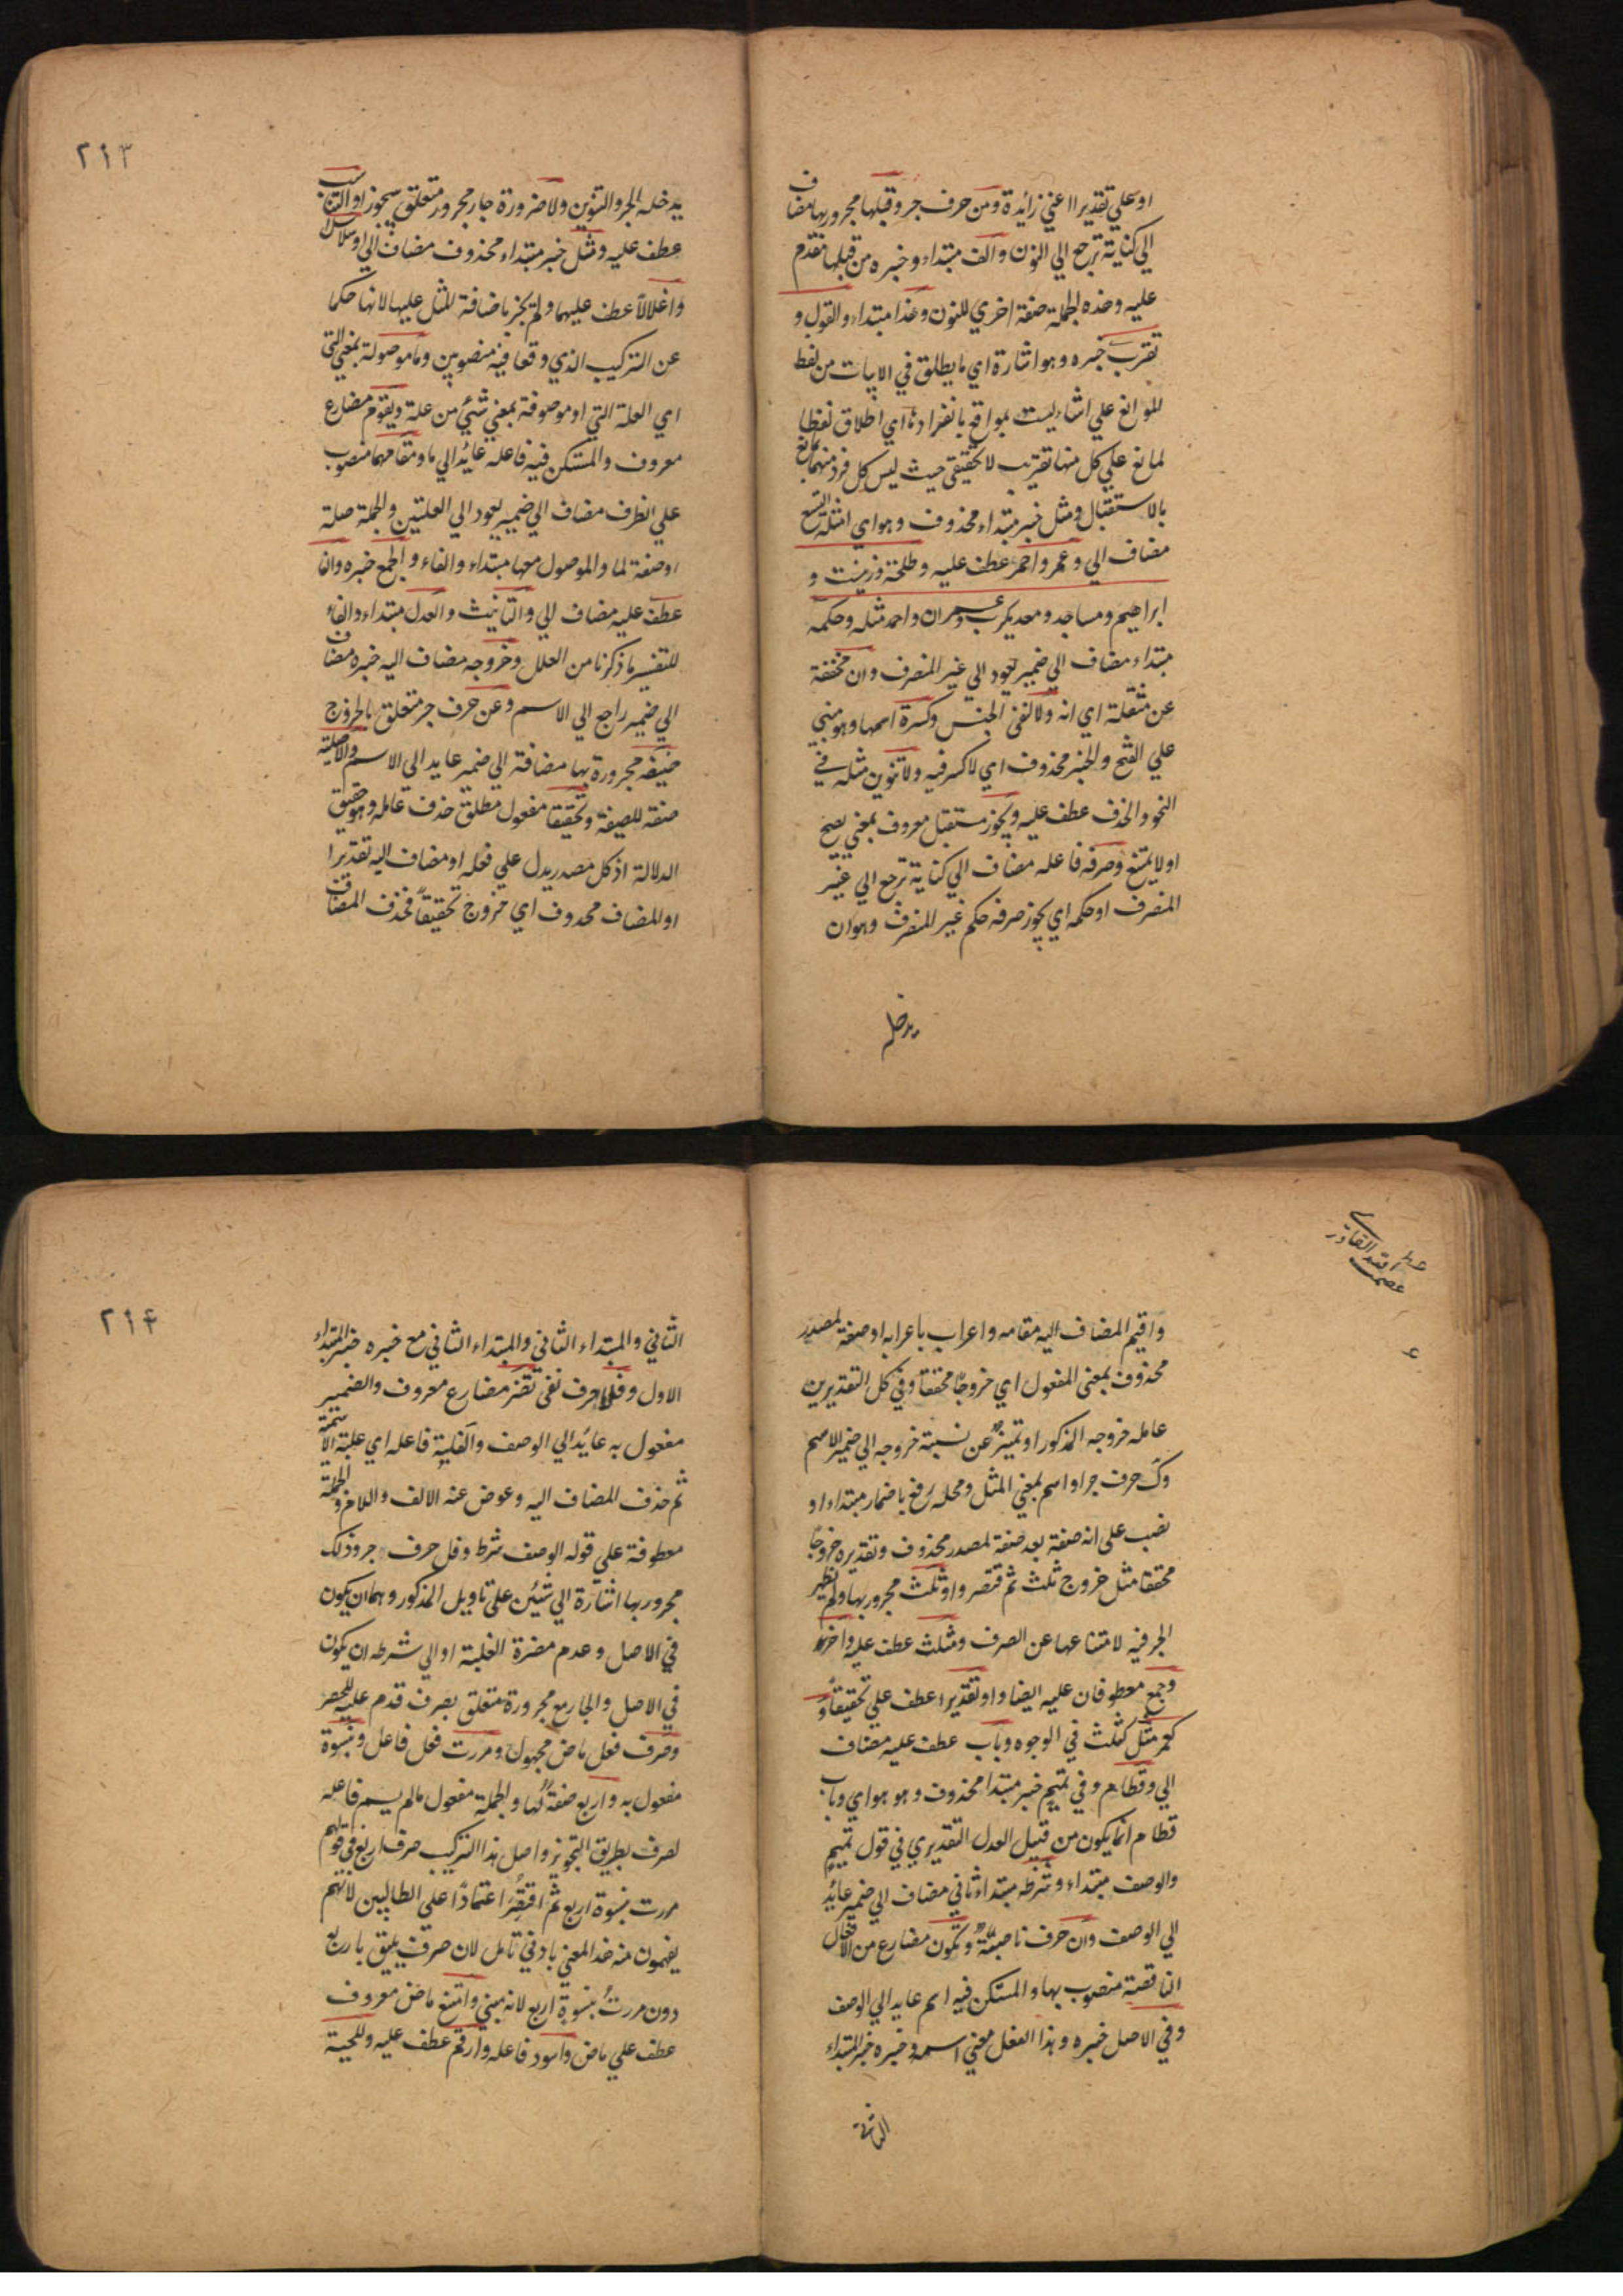 او علي تقدير اعني زائدة ومن حرف جر وقبلها مجرور بها مضاف
الي كناية ترجع الي النون والف مبتداء وخبره من قبلها تقدم
عليه وهذه الجملة صفة اخري للنون وهذا مبتداء والقول و
تقريب خبره وهو اشارة اي ما يطلق في الابيات من لفظ
الموانع علي اشياء ليست بموانع بانفرادها اي اطلاق لفظ
المانع علي كل منها تقريب لا تحقيقي حيث ليس كل فرد منها مانع
بالاستقبال ومثل خبر مبتداء محذوف وهو اي امثلة التسع
مضاف الي وعمر واحمر عطف عليه وطلحة وزينب و
ابراهيم ومساجد ومعديكرب وعمران واحمد مثله وحكمه
مبتداء مضاف الي ضمير يعود الي غير المنصرف وان مخففة
عن مثقلة اي انه ولا لنفي الجنس وكسرة اسمها وهو مبني
علي الفتح والخبر محذوف اي لا كسر فيه ولا تنوين مثله في
النحو والحذف عطف عليه ويجوز مستقبل معروف بمعني يصح
او لا يمتنع وصرفه فاعله مضاف الي كناية ترجع الي غير
المنصرف او حكمه اي يجوز صرفه حكم غير المنصرف وهو ان
يدخله
٢١٣
يدخله الجر والتنوين ولا ضرورة جار مجرور متعلق بيجوز او التناسب
عطف عليه ومثل خبر مبتداء محذوف مضاف الي او سلاسلا
واغلالا عطف عليهما ولم يجز باضافة المثل عليها لانها حكما
عن التركيب الذي وقعا فيه منصوبين وما موصولة بمعني التي
اي العلة التي او موصوفة بمعني شئ من علة ويقوم مضارع
معروف والمستكن فيه فاعله عائد الي ما ومقامهما منصوب
علي الظرف مضاف الي ضمير يعود الي العلتين والجملة صلة
او صفة لما والموصول معها مبتداء والفاء و الجمع خبره وان
عطف عليه مضاف الي والتانيث والعدل مبتداء والفاء
للتفسير ما ذكرنا من العلل وخروجه مضاف اليه خبره مضاف
الي ضمير راجع الي الاسم وعن حرف جر متعلق بالخروج
صيغه مجرورة بها مضافة الي ضمير عايد الي الاسم والاصلية
صفة للصيغة وتحقيقا مفعول مطلق حذف عامله وهو حقيق
الدلالة اذ كل مصدر يدل علي فعله او مضاف اليه تقديرا
او المضاف محذوف اي خروج تحقيقاً فحذف المضاف
واقيم المضاف اليه مقامه واعراب باعرابه او صفة لمصدر
محذوف بمعني المفعول اي خروجًا محققا وفي كل التقديرين
عامله خروجه المذكور او تميزٌ عن نسبة خروجه الي ضمير الاسم
وك حرف جر او اسم بمعني المثل ومحله رفع باضمار مبتداء او
نصب علي انه صفة بعد صفة لمصدر محذوف وتقديره خروجًا
محققا مثل خروج ثلث ثم قتصر واو ثلث مجرور بها ولم يظهر
الجر فيه لامتناعها عن الصرف ومثلث عطف عليه واخر
وجمع معطوفان عليه ايضا واو تقديرا عطف علي تحقيقاً و
كعمر مثل كثلث في الوجوه وباب عطف عليه مضاف
الي وقطام وفي تميم خبر مبتدا محذوف وهو هو اي وباب
قطام انما يكون من قبيل العدل التقديري في قول تميم
والوصف مبتداء وشرطه مبتداء ثاني مضاف الي ضمير عائد
الي الوصف وان حرف ناصبةٌ وتكون مضارع من الافعال
الناقصة منصوب بها والمستكن فيه اسم عايد الي الوصف
وفي الاصل خبره وهذا الفعل معني اسمه وخبره خبر المبتداء
الثاني
٢١٤
الثاني والمبتداء الثاني والمبتداء الثاني مع خبره خبر المبتداء
الاول وفلا حرف نفي تضر مضارع معروف والضمير
مفعول به عائد الي الوصف والغلبة فاعله اي غلبة الاسمية
ثم حذف المضاف اليه وعوض عنه الالف واللام والجملة
معطوفة علي قوله الوصف شرط وفل حرف جر وذلك
مجرور بها اشارة الي شيئن علي تاويل المذكور وهما ان يكون
في الاصل وعدم مضرة الغلبة او الي شرطه ان يكون
في الاصل والجار مع مجرورة متعلق بصرف قدم عليه للحصر
وصرف فعل ماض مجهول ومررت فعل فاعل وبنسوة
مفعول به واربع صفةٌ لها والجملة مفعول مالم يسم فاعله
لصرف بطريق التجويز واصل هذا التركيب صرف اربع في قولهم
مررت بنسوة اربع ثم اقتصُر اعتمادًا علي الطالبين لانهم
يفهمون منه هذا المعني بادني تامل لان صرف يليق باربع
دون مررتُ بنسوة اربع لانه مبني وامتنع ماض معروف
عطف علي ماض واسود فاعله وارقم عطف عليه وللحية